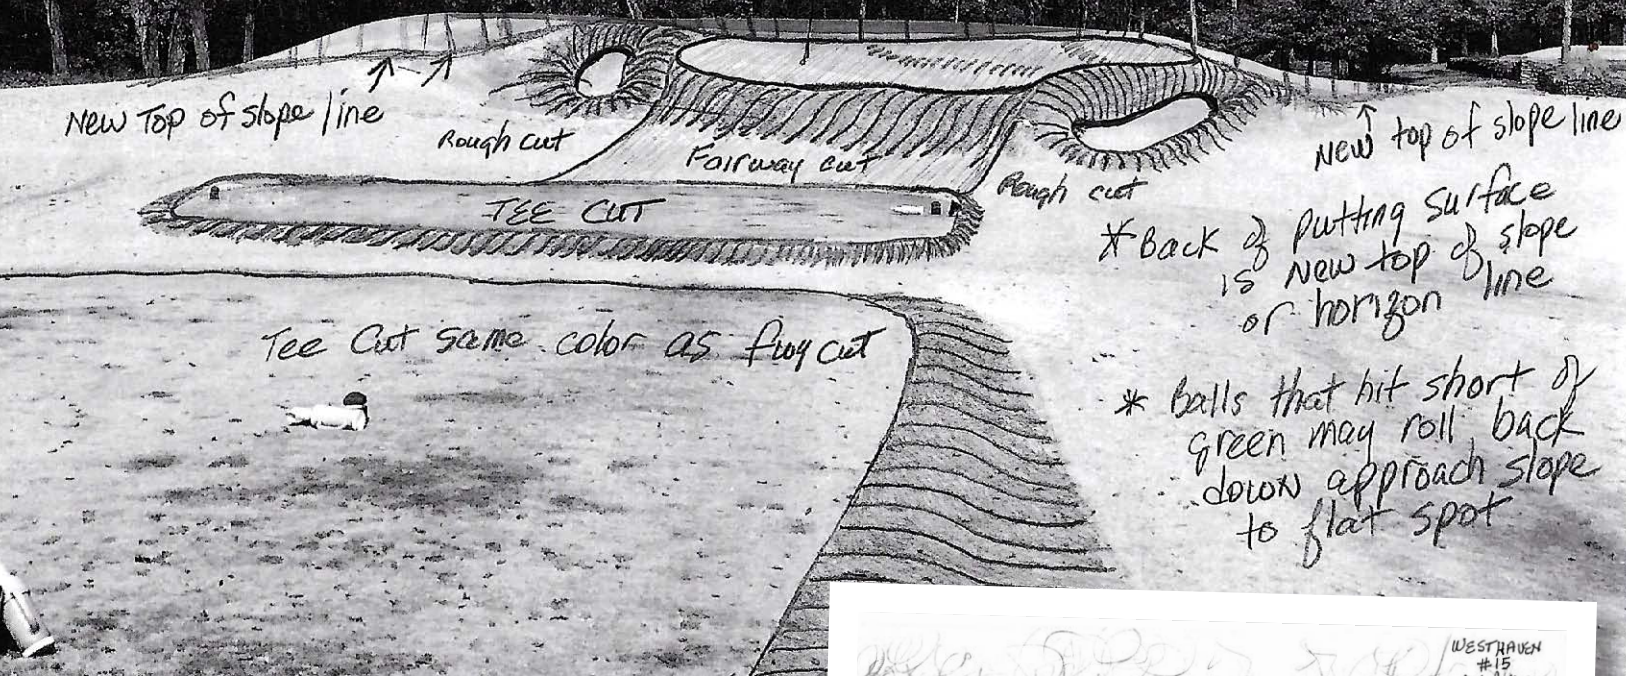 New Top of slope line
Rough cut
Fairway cut
New top of slope line
Rough cut
TEE CUT
* Back of putting surface
is New top of slope
line
or horizon
Tee Cut same color as fwy cut
* Balls that hit short of
green may roll back
down approach slope
to flat spot
WESTHAVEN
#15